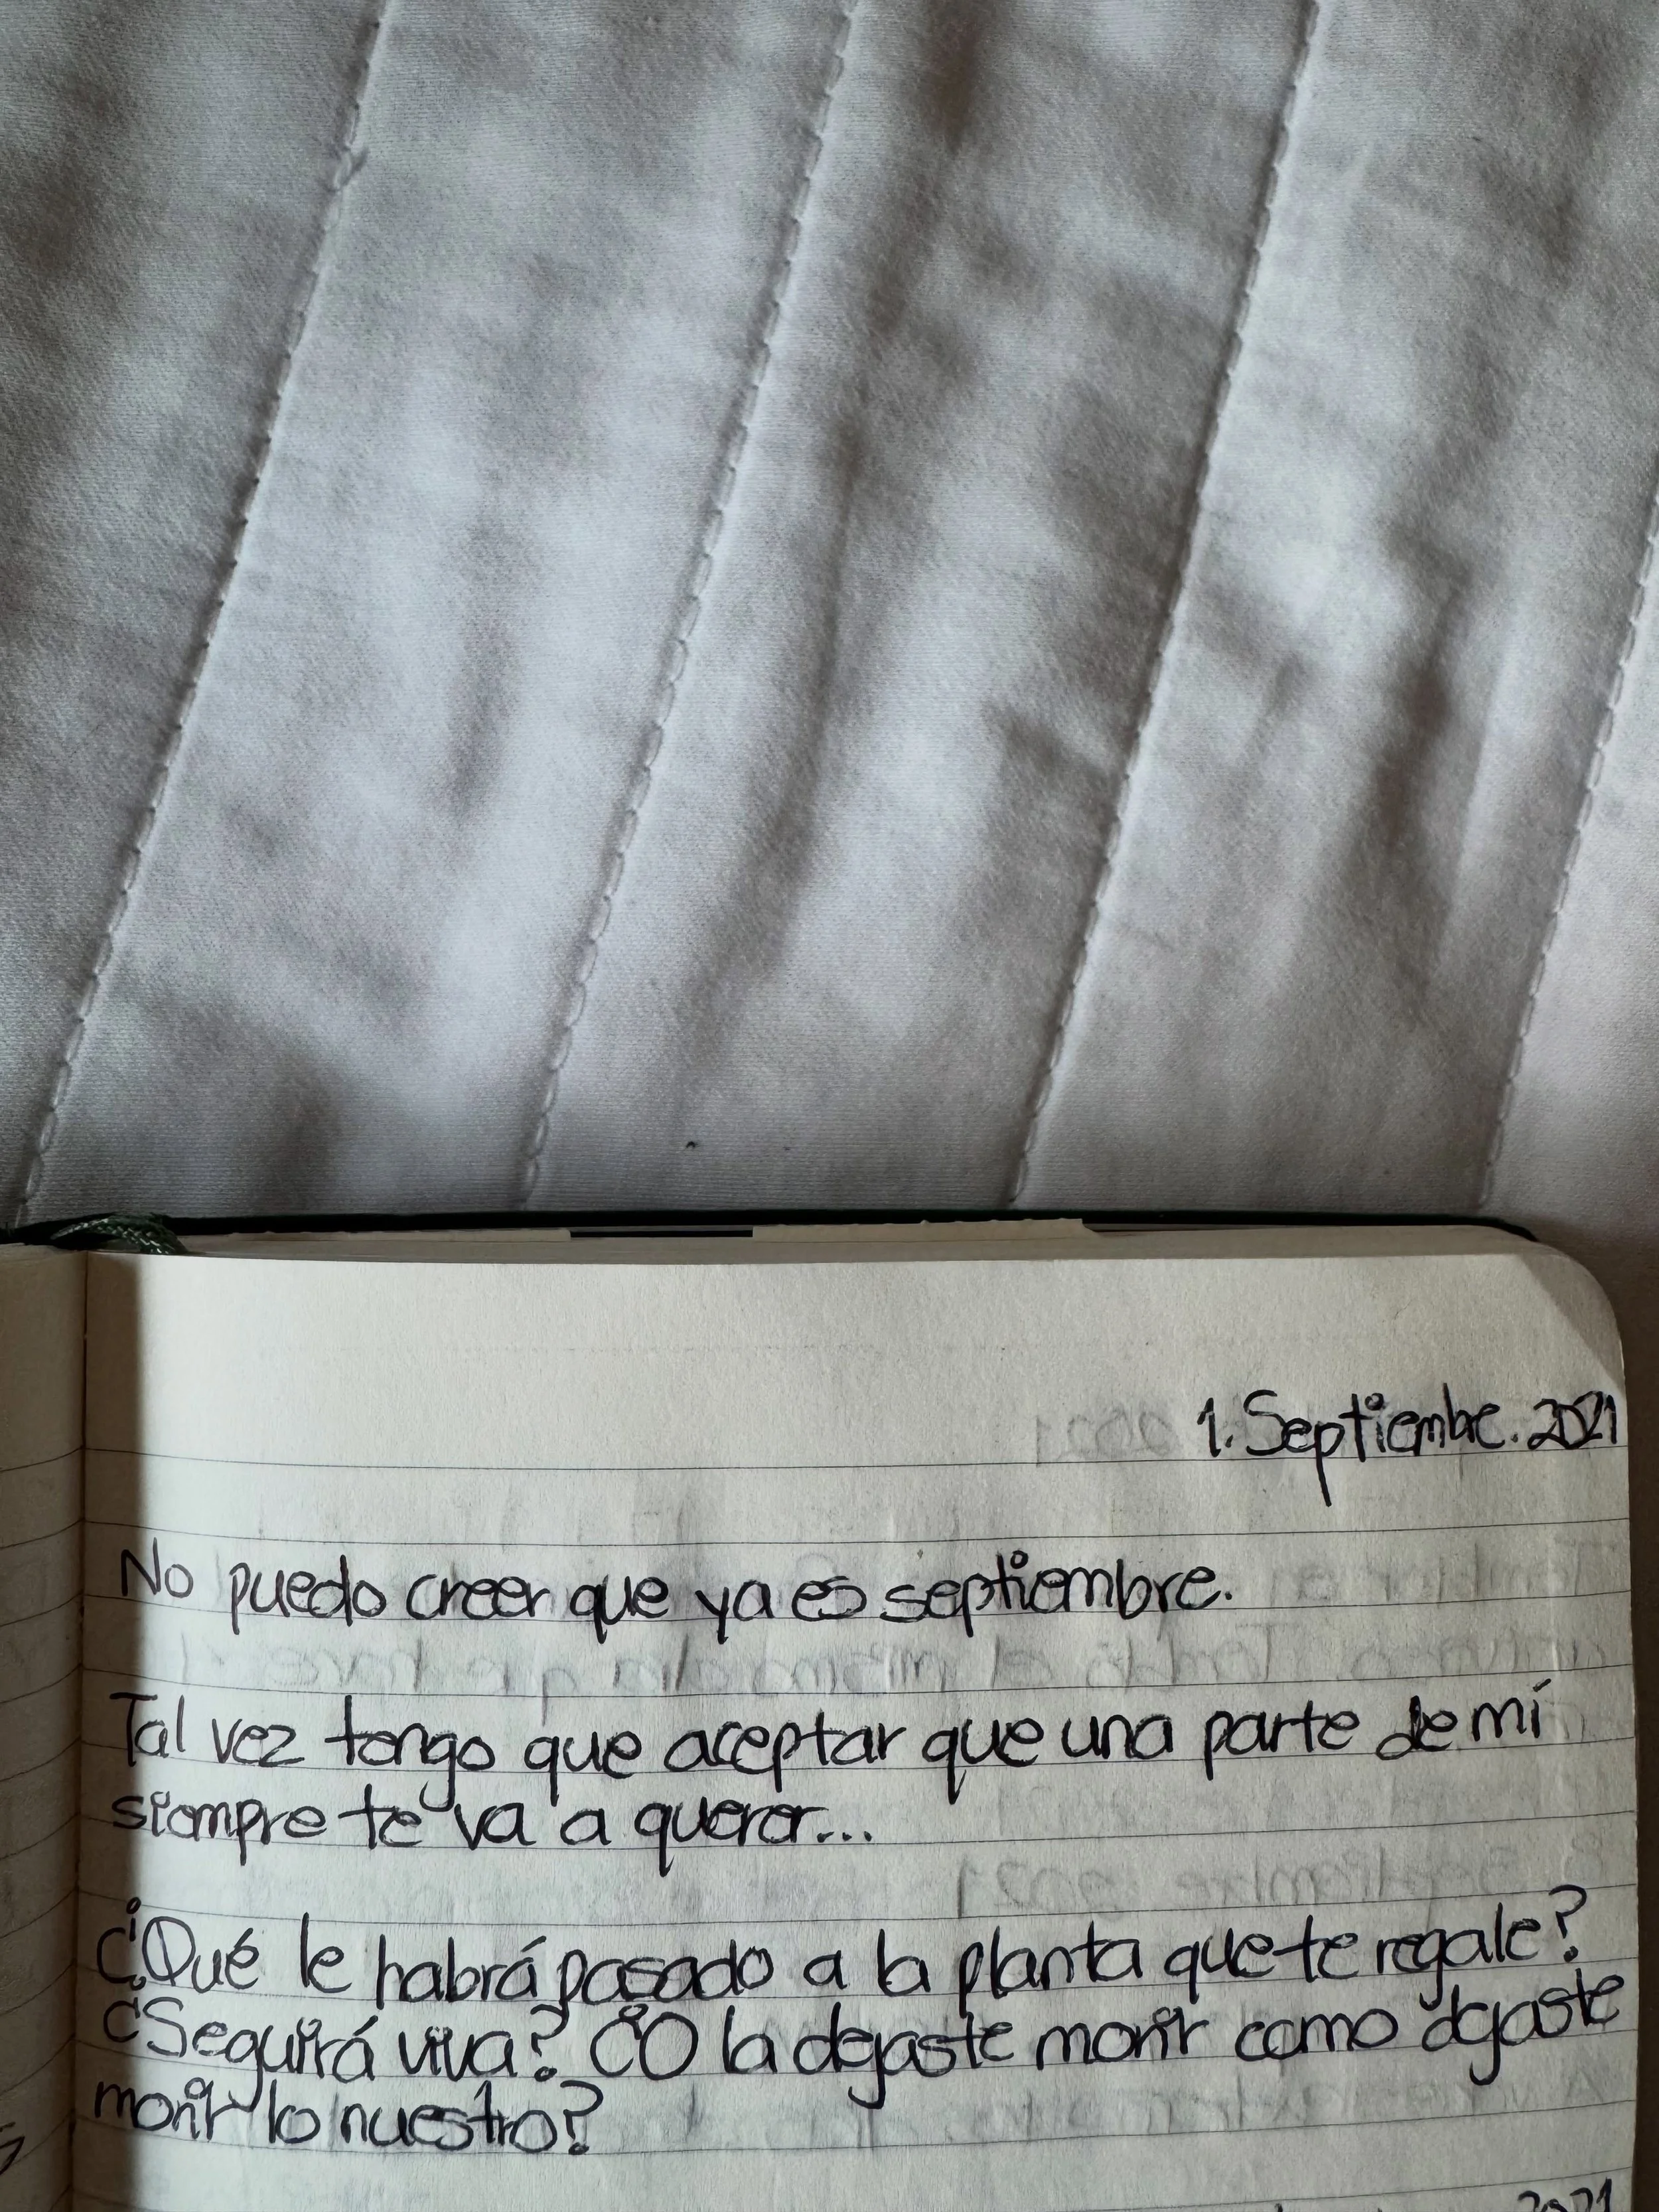 1. Septiembre. 2021
No puedo creer que ya es septiembre.
Tal vez tengo que aceptar que una parte de mí
siempre te va a querer...
¿Qué le habrá pasado a la planta que te regale?
¿Seguirá viva? ¿O la dejaste morir como dejaste
morir lo nuestro?
2021